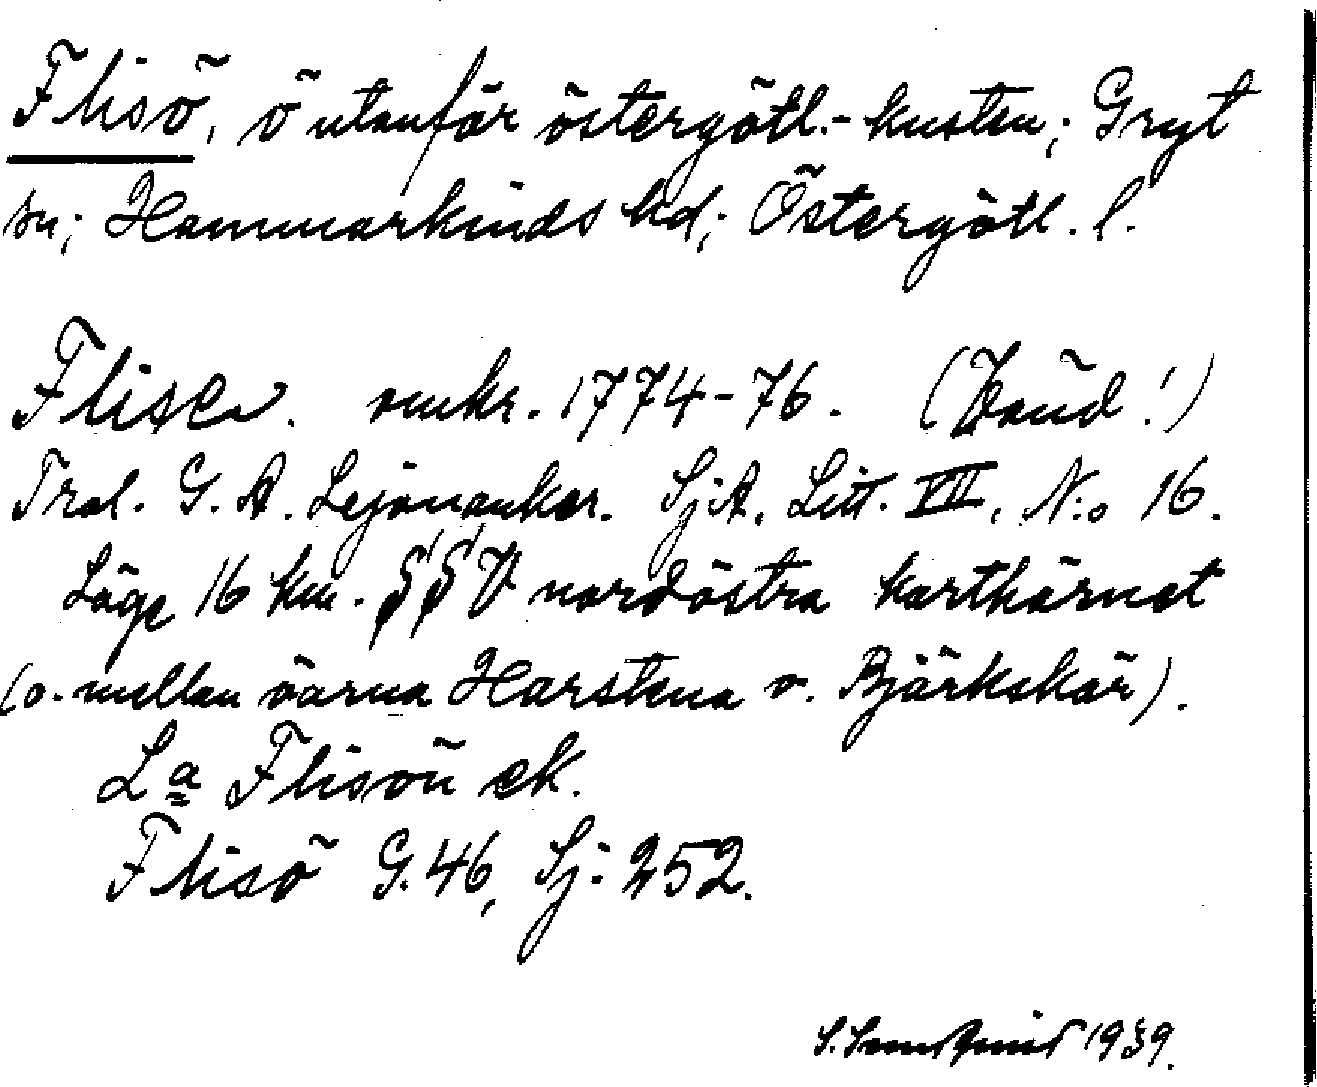 Flisö, ö utanför östergötl.-kusten; Gryt
sn; Hammarkinds hd; Östergötl. l.
Flise. omkr. 1774-76.
Trol. G. A. Lejonanker. SjA. Litt. VII, N:o 16.
Läge 16 km. SSV nordöstra karthörnet
(o. mellan öarna Harstena o. Björkskär).
La Flisön ek.
Flisö G. 46, Sj: 252.
1939.